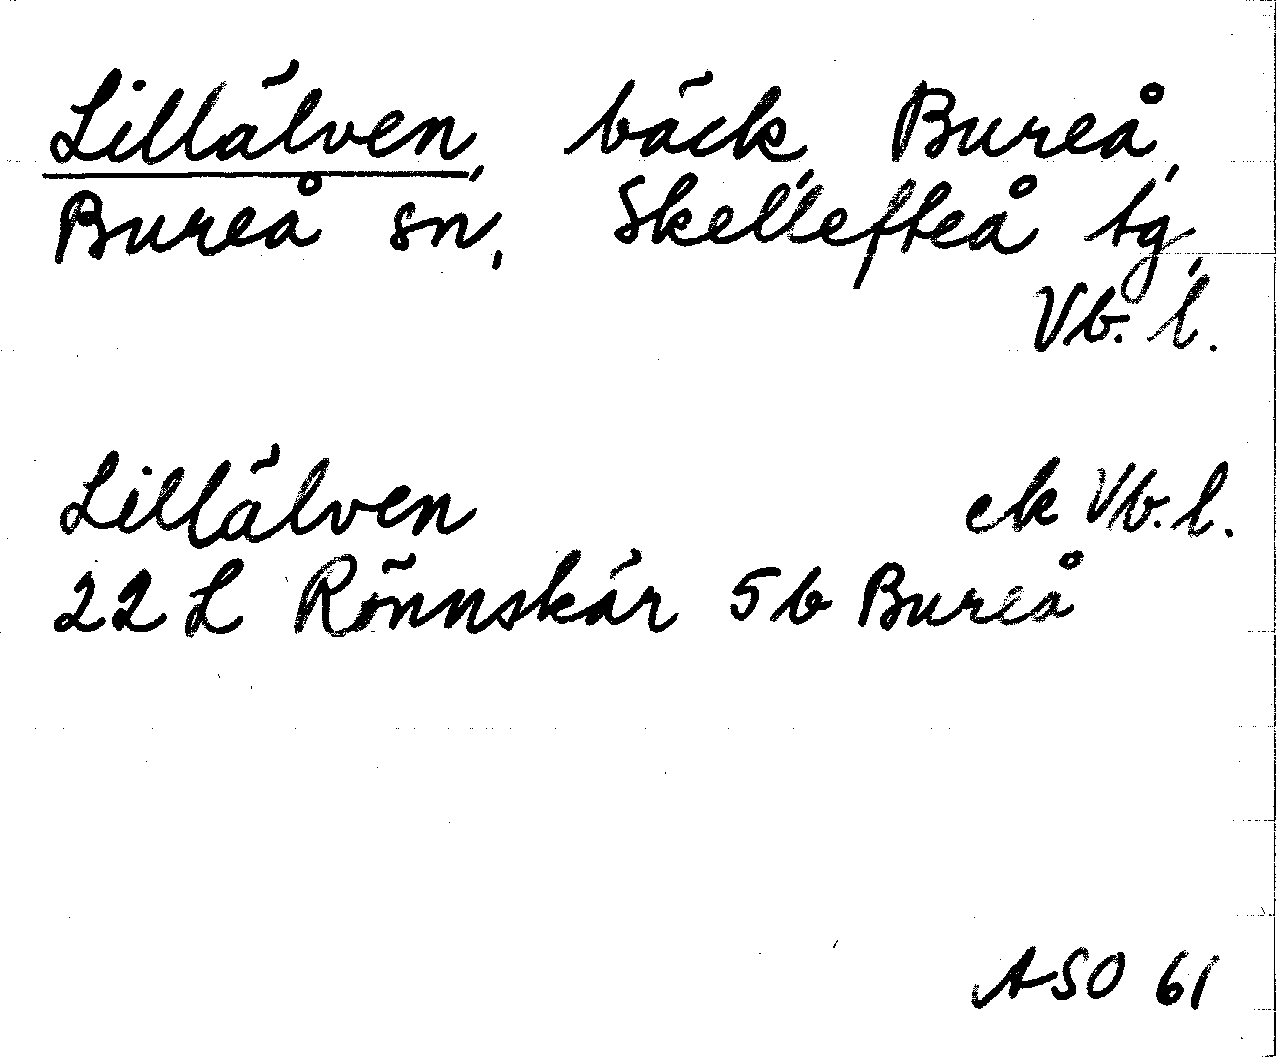 Lillälven, bäck, Bureå,
Bureå sn, Skellefteå tg,
Vb. l.
Lillälven ek Vb. l.
22 L Rönnskär 5 b Bureå
ASO 61